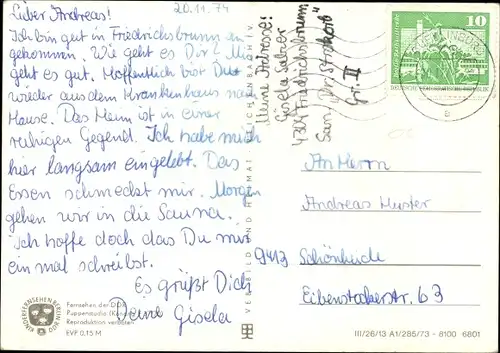 20.11.74
Lieber Andreas!
Ich bin gut in Friedrichsbrunn an
gekommen. Wie geht es Dir? Mir
geht es gut. Hoffentlich bist Du
wieder aus dem Krankenhaus nach
Hause. Das Heim ist in einer
ruhigen Gegend. Ich habe mich
hier langsam eingelebt. Das
Essen schmeckt mir. Morgen
gehen wir in die Sauna.
Ich hoffe doch das Du mir
ein mal schreibst.
Es grüßt Dich
Deine Gisela
Meine Adresse!
Gisela
4304 Friedrichsbrunn
San.
Gr. II
10
DEUTSCHE DEMOKRATISCHE REPUBLIK
An Herrn
Andreas
9413 Schönheide
Eibenstockerstr. 63
KINDERFERNSEHEN BERLIN DDR
Fernsehen der DDR
Reproduktion verboten
EVP 0,15 M
VEB BILD UND HEIMAT REICHENBACH I. V.
III/26/13 A1/285/73 - 8100 6801